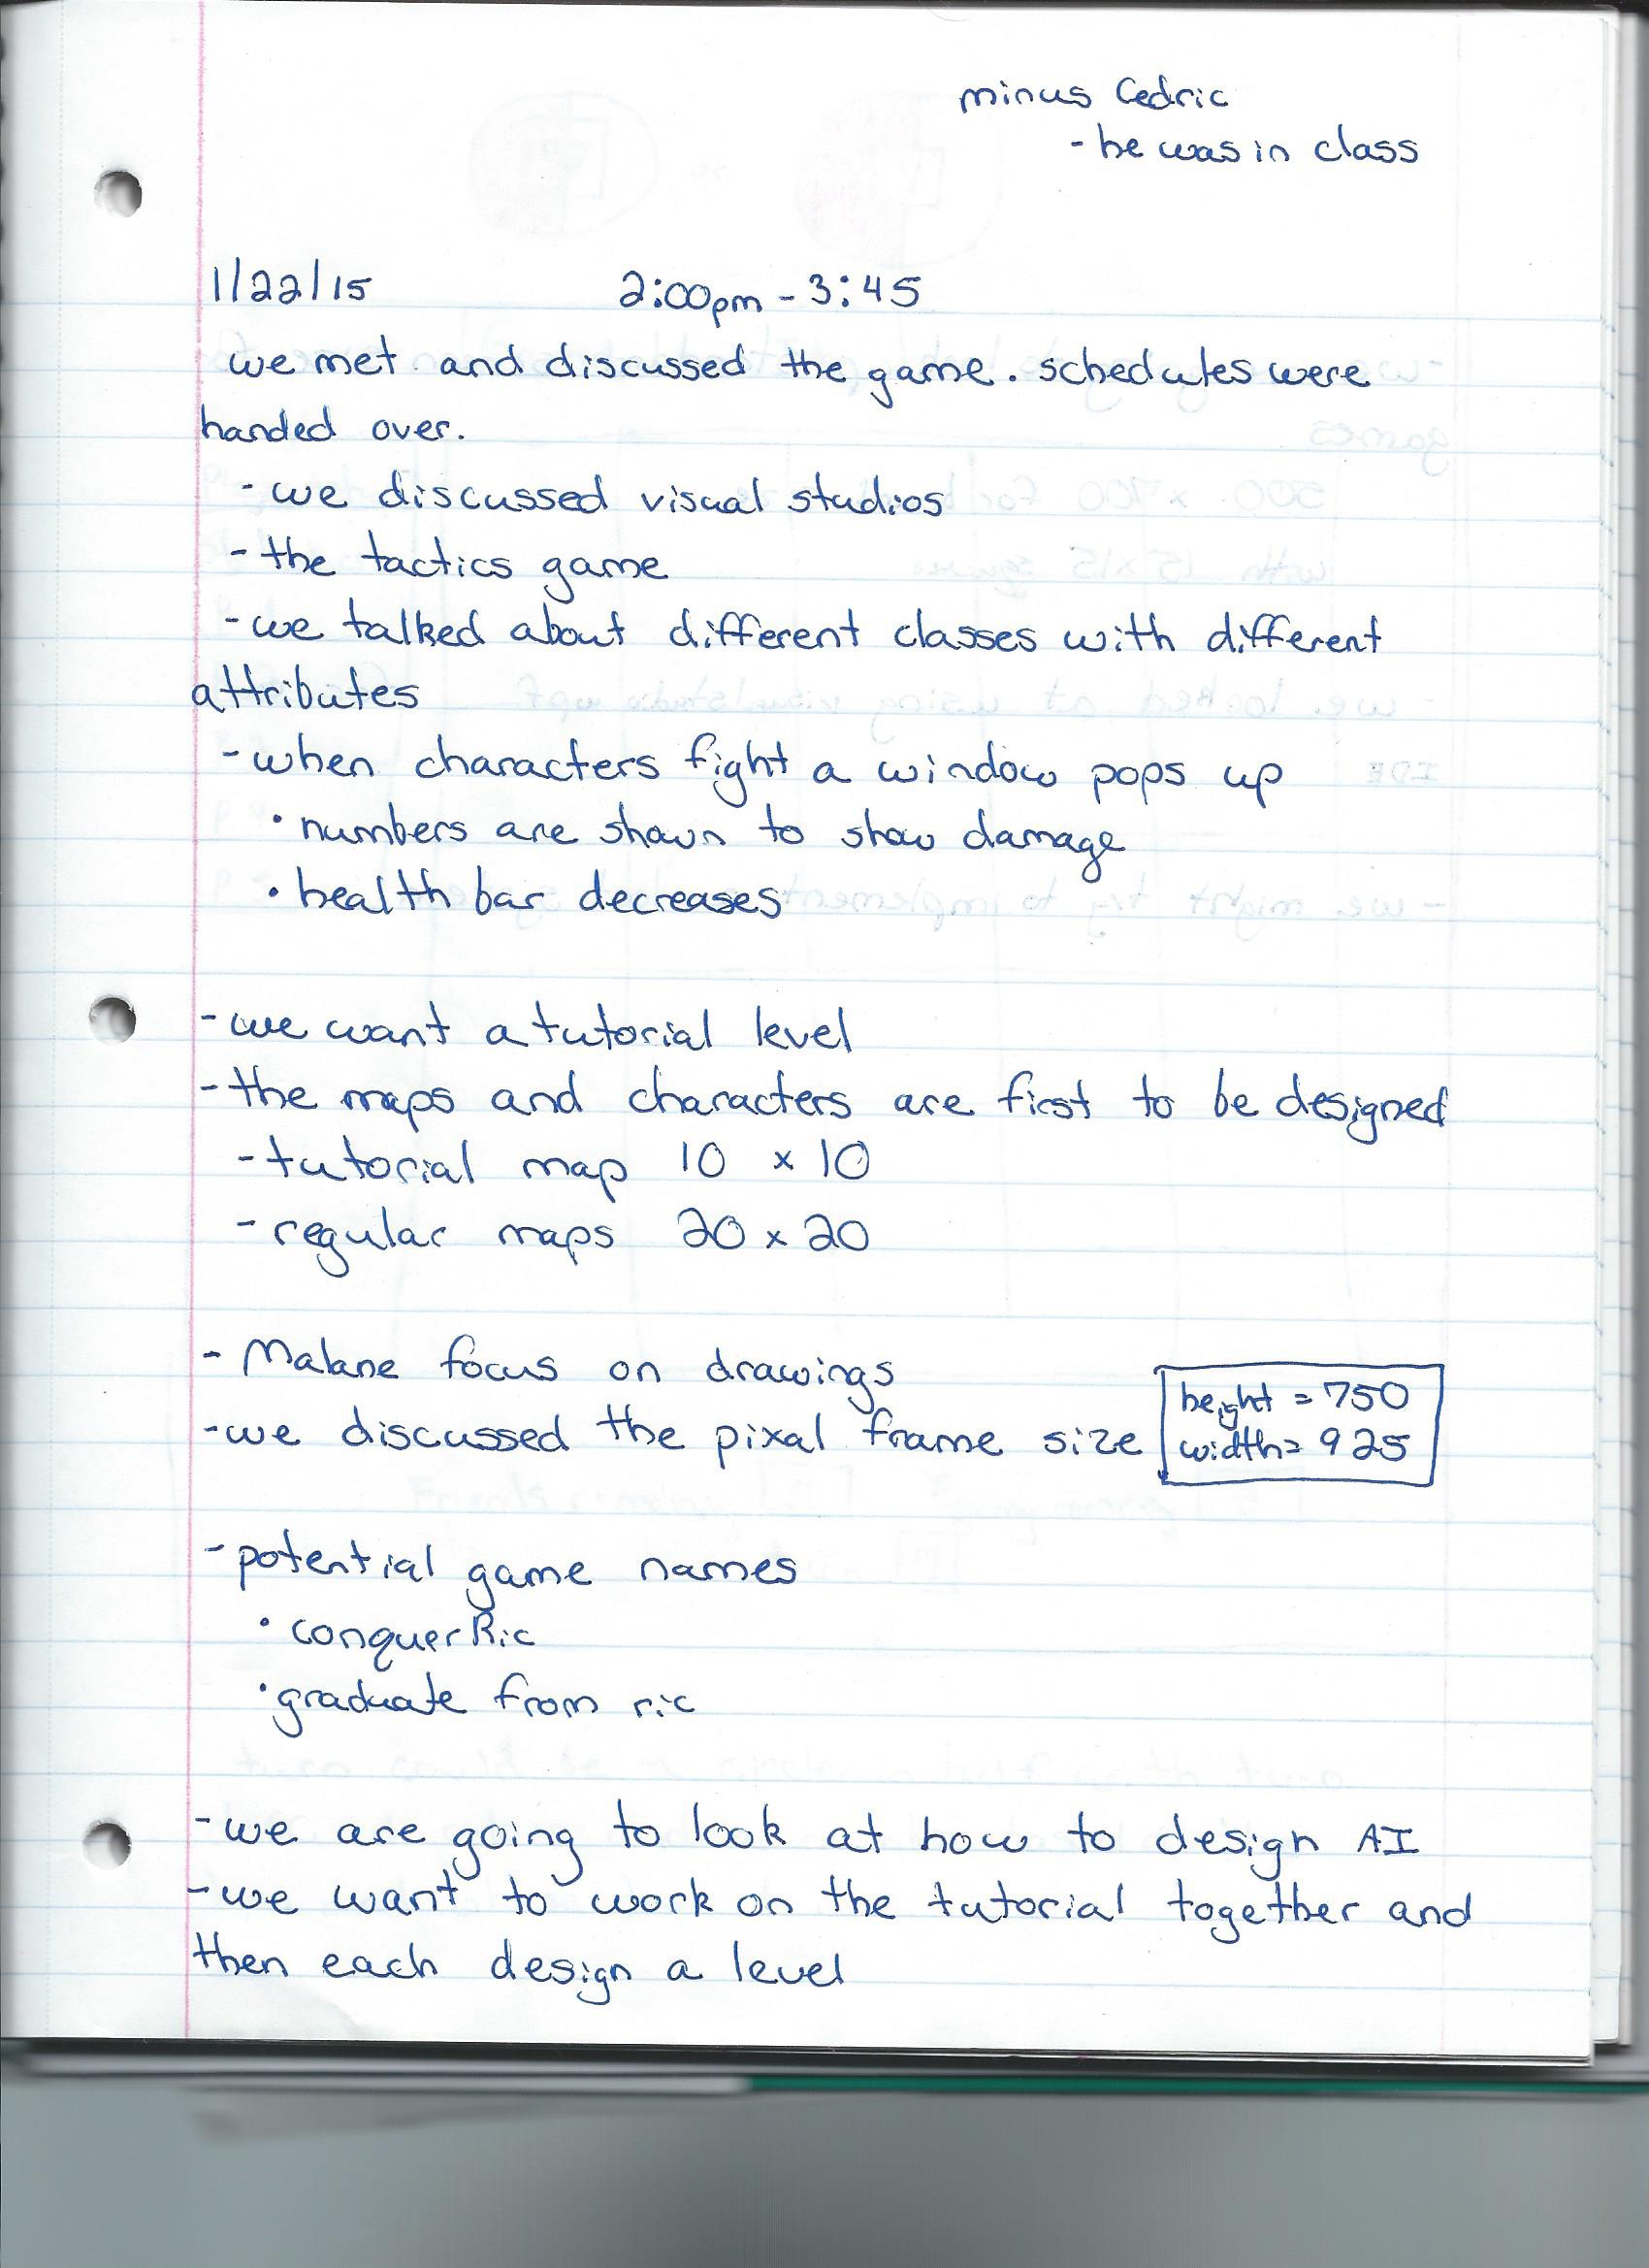 minus Cedric
- he was in class
1/22/15 2:00pm - 3:45
we met and discussed the game. schedules were
handed over.
- we discussed visual studios
- the tactics game
- we talked about different classes with different
attributes
- when characters fight a window pops up
• numbers are shown to show damage
• health bar decreases
- we want a tutorial level
- the maps and characters are first to be designed
- tutorial map 10 x 10
- regular maps 20 x 20
- Malane focus on drawings
- we discussed the pixal frame size
height = 750
width = 925
- potential game names
• conquer Ric
• graduate from ric
- we are going to look at how to design AI
- we want to work on the tutorial together and
then each design a level